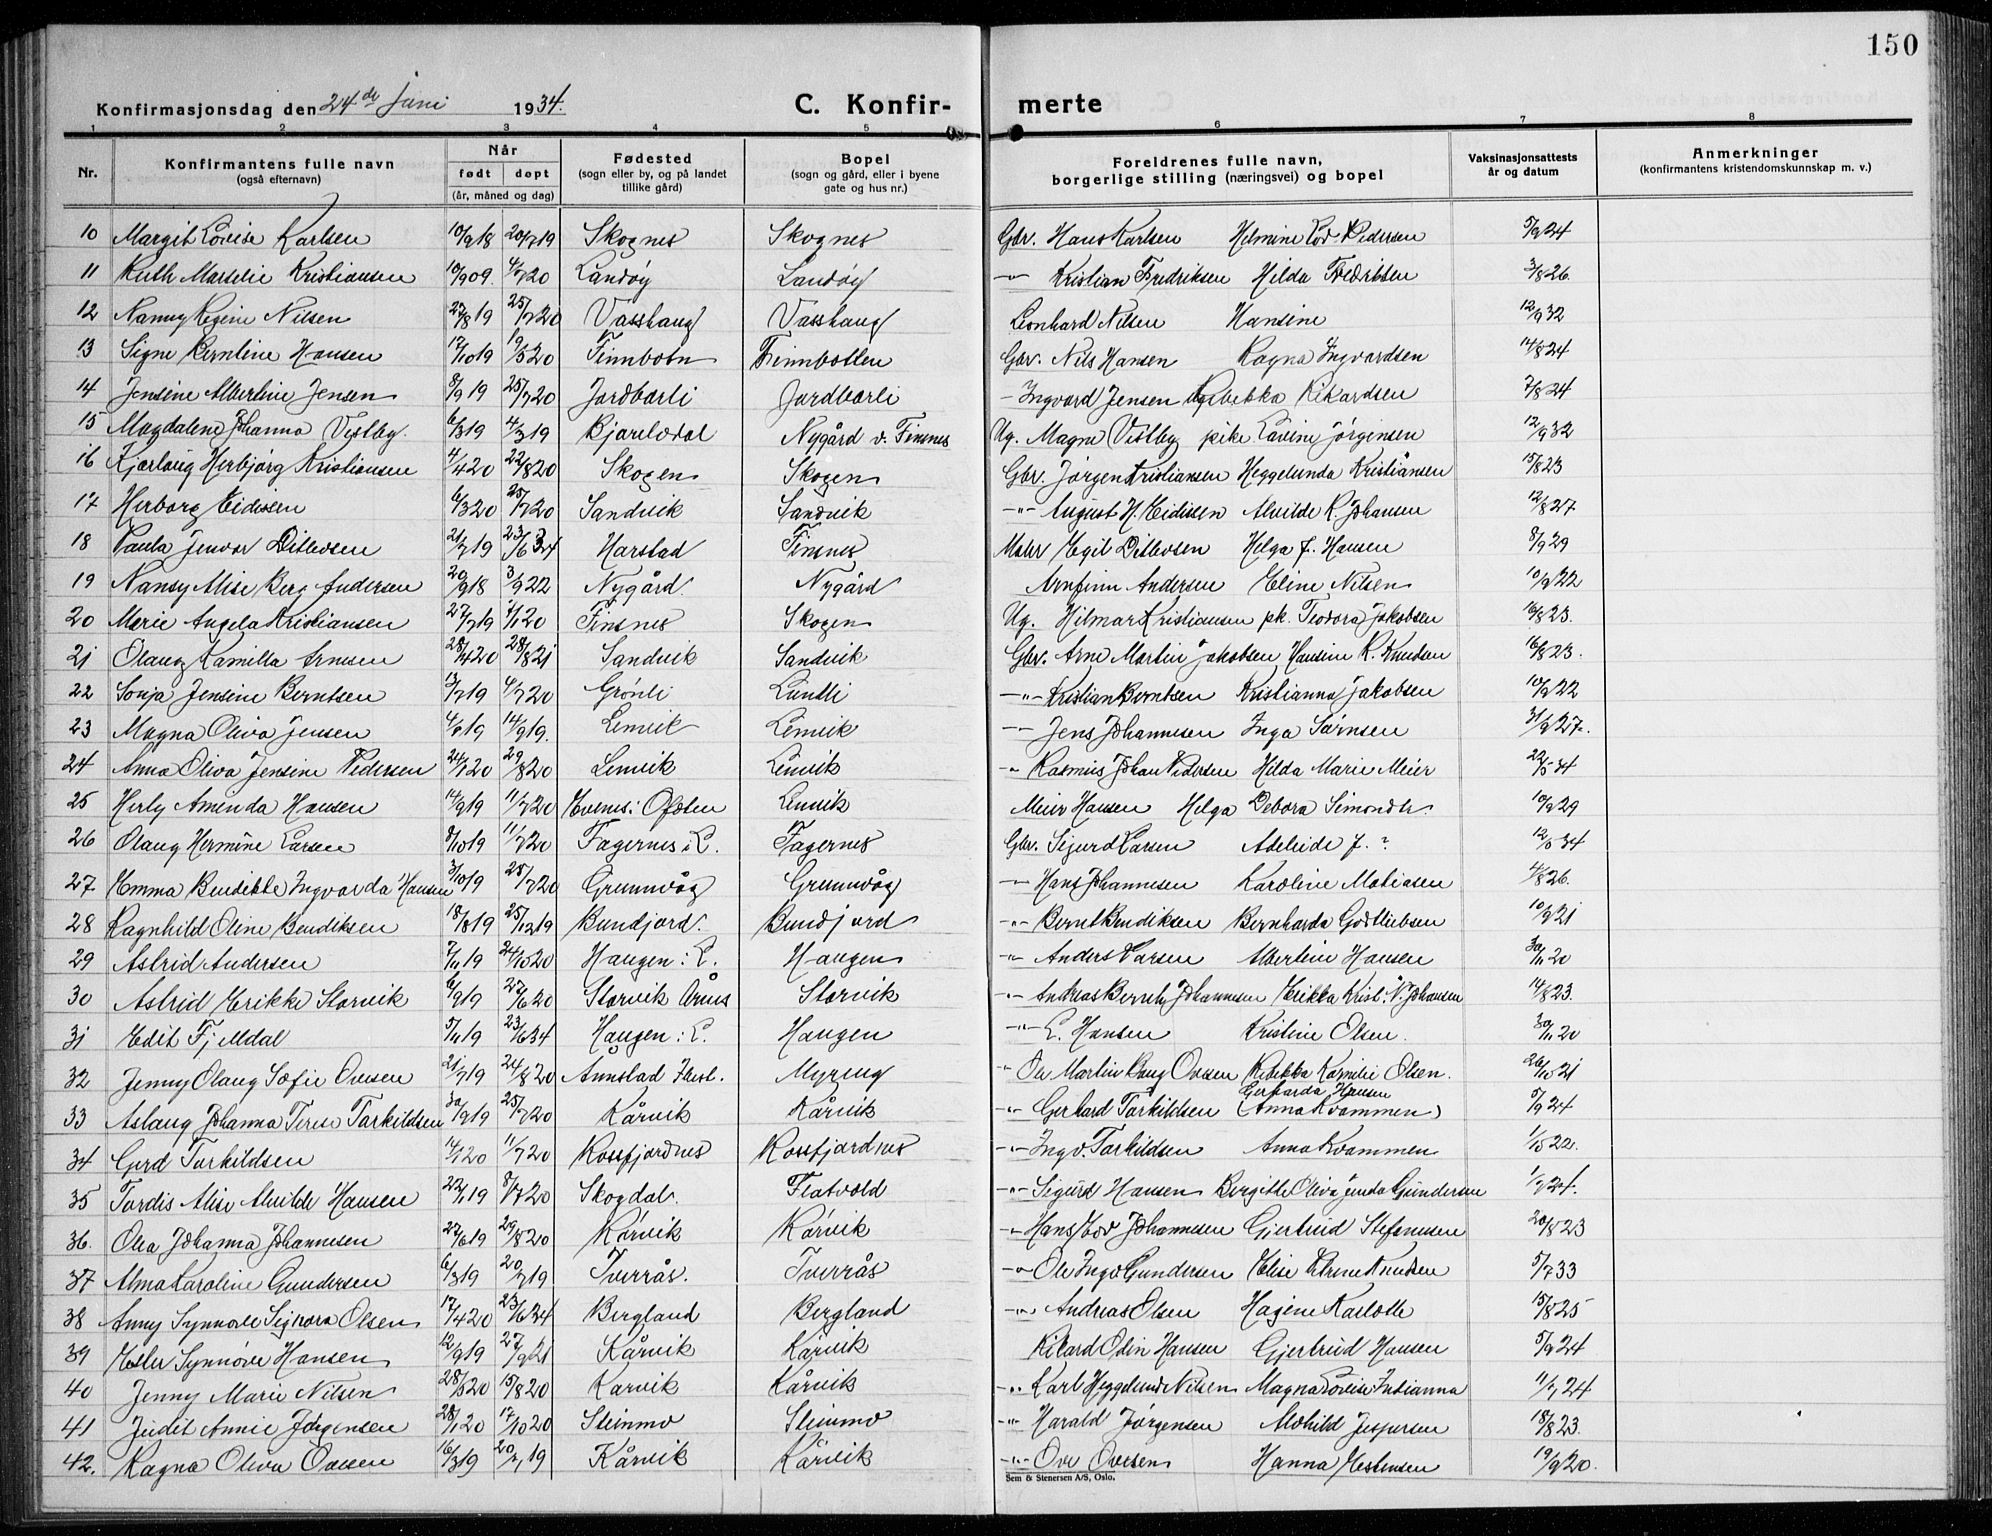 150
Konfirmasjonsdag den 24de juni 1934.
C. Konfirmerte
1 2 3 4 5 6 7 8
Nr. Konfirmantens fulle navn (også efternavn) Når født døpt (år, måned og dag) Fødested (sogn eller by, og på landet tillike gård) Bopel (sogn og gård, eller i byene gate og hus nr.) Foreldrenes fulle navn, borgerlige stilling (næringsvei) og bopel Vaksinasjonsattests år og datum Anmerkninger (konfirmantens kristendomskunnskap m. v.)
10 Margit Lovise Karlsen 10/9 18 20/7 19 Skognes Skognes Gbr. Hans Karlsen Helmine Lov Pedersen 5/9 24
11 Ruth Marselie Kristiansen 10/9 09. 4/7 20 Landøy Landøy -"- Kristian Fredriksen Hilda Fredriksen 3/8 26.
12 Nanny Regine Nilsen 23/8 19 25/7 20 Vasshaug Vasshaug Leonhard Nilsen Hansine 12/9 32
13 Signe Berntine Hansen 17/10 19 19/5 20 Finnbotn Finnbotten Gbr. Nils Hansen Ragna Ingvardsen 14/8 24
14 Jensine Albertine Jensen 8/9 19 25/7 20 Jordbarli Jordbarli - Ingvard Jensen Rebekka Rikardsen 7/8 24
15 Magdalene Johanna Vestby. 6/3 19 4/3 19 Nygård v. Finsnes Ug. Magne Vestby pike Lavine Jørgensen 12/9 32
16 Kjerlaug Herbjørg Kristiansen 4/4 20 22/8 20 Skogen Skogen Gbr. Jørgen Kristiansen Heggelunda Kristiansen 15/8 23
17 Herborg Eidissen 6/3 20 25/7 20 Sandvik Sandvik -"- August H. Eidissen Alvilde R. Johansen 12/8 27
18 Paula Jenvor Ditlevsen 21/7 19 23/6 34 Harstad Finsnes Egil Ditlevsen Helga J. Hansen 8/9 29
19 Nansy Alise Berg Andersen 20/9 18 3/9 22 Nygård Nygård Arnfinn Andersen Eline Nilsen 10/9 22
20 Merie Angela Kristiansen 27/7 19 4/1 20 Finsnes Skogen Ug. Hilmar Kristiansen pk. Teodora Jakobsen 16/8 23.
21 Olaug Kamilla Arnesen 28/4 20 28/8 21 Sandvik Sandvik Gbr. Arne Martin Jakobsen Hansine R. Knudsen 16/8 23.
22 Sonja Jensine Berntsen 13/7 19 4/7 20 Grønli Lundli -"- Kristian Berntsen Kristianna Jakobsen 10/9 22
23 Magna Oliva Jensen 4/8 19 14/9 19. Lenvik Lenvik -"- Jens Johannesen Inga Sørnsen 31/8 27.
24 Anna Oliva Jensine Pedersen 24/1 20 29/8 20 Lenvik Lenvik -"- Rasmus Johan Pedersen Hilda Marie Meier 22/5 34
25 Herly Amenda Hansen 14/9 19 11/7 20 Evenes i Ofoten Lenvik Meier Hansen Helga Debora Simondtr. 10/9 29
26 Olaug Hermine Larsen 8/10 19 11/7 20 Fagernes i L. Fagernes Gbr. Sigurd Larsen Adeleide J. ? 12/5 34
27 Emma Bendikte Ingvarda Hansen 3/10 19 25/7 20 Grunnvåg Grunnvåg -"- Hans Johannesen Karoline Matiasen 4/8 26.
28 Ragnhild Oline Bendiksen 18/8 19 25/12 19 Bundjord. Bundjord -"- Bernt Bendiksen Bernharda Godtliebsen 10/9 21
29 Astrid Andersen 7/11 19 24/10 20 Haugen i L. Haugen -"- Anders Larsen Albertine Hansen 30/11 20
30 Astrid Erikke Storvik 6/9 19 27/6 20 Storvik Årnes Storvik -"- Andreas Berntz Johannesen Erikka Krist. N. Johansen 14/8 23.
31 Edit Fj Mdal 5/11 19 23/6 34 Haugen i L. Haugen -"- L. Hansen Kristine Olsen. 30/11 20
32 Jenny Olaug Sofie Ovesen 21/7 19 24/8 20 Annstad Hest. Myreng -"- Ole Martin Ovesen Rebekka Kornelie Olsen. 26/10 21
33 Aslaug Johanna Terese Torkildsen 30/9 19 25/7 20 Kårvik Kårvik -"- Gerhard Torkildsen Gerharda Hansen (Anna Kvammen) 5/9 24
34 Gerd Torkildsen 14/1 20 11/7 20 Rossfjordnes Rossfjordnes -"- Ingv. Torkildsen Anna Kvammen 1/10 22.
35 Tordis Alise Alvilde Hansen 22/11 19 8/7 20 Skogdal. Flatvold -"- Sigurd Hansen Bergitte Oliva Jenda Gundersen 1/9 24.
36. Olea Johanna Johannesen 27/6 19 29/8 20 Kårvik Kårvik -"- Hans Edv Johannesen Gjertrud Stefanusen 20/8 23
37 Alma Karoline Gundersen 6/3 19 20/7 19 Tverrås. Tverrås -"- Ole Ingv Gundersen Elise Petrine Knudsen 5/7 33
38 Anny Synnøve Signora Olsen 17/4 20 23/6 34 Bergland Bergland -"- Andreas Olsen Hagine Karlotte 15/8 25
39 Ester Synnøve Hansen 12/9 19 27/9 21 Kårvik Kårvik Rikard Odin Hansen Gjertrud Hansen 5/9 24
40 Jenny Marie Nilsen 28/5 20 15/8 20 Kårvik Kårvik -"- Karl Heggelund Nilsen Magna Lovise Indianna 11/7 24
41 Judit Annie Jørgensen 28/1 20 17/10 20 Steinmo Steinmo -"- Harald Jørgensen Alvhild Jespersen 18/8 23.
42. Ragna Oliva Ovesen 16/3 19 20/7 19 Kårvik Kårvik -"- Ove Ovesen Hanna Estensen 19/9 20.
Sem & Stenersen A/S, Oslo.